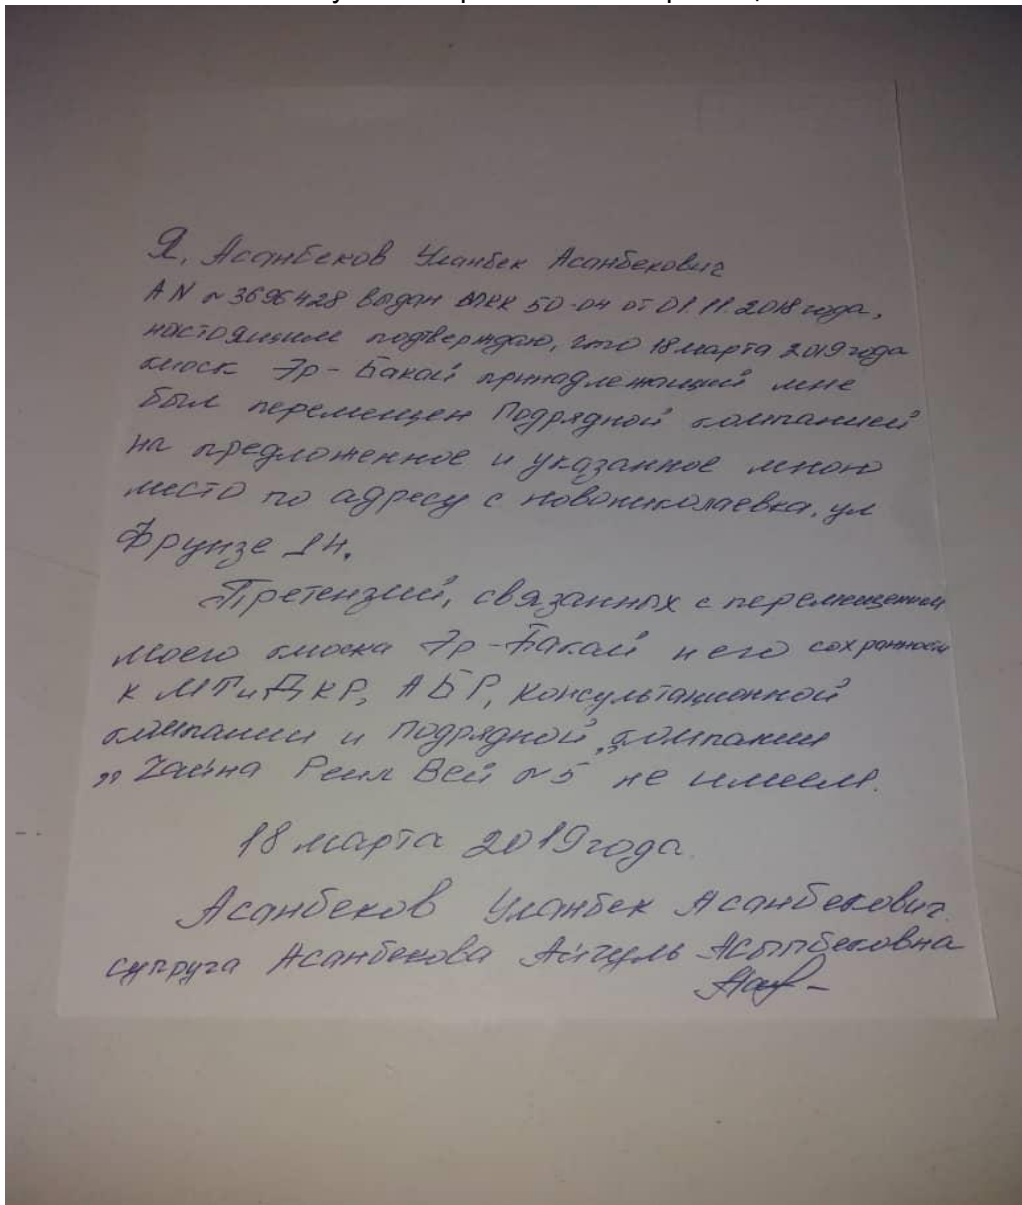 Я, Асанбеков Уланбек Асанбекович
AN № 3696428 выдан МКК 50-04 от 01.11.2018 года,
настоящим подтверждаю, что 18 марта 2019 года
киоск Эр-Бакай принадлежащий мне
был перемещен Подрядной компанией
на предложенное и указанное мною
место по адресу с новониколаевка, ул
Фрунзе 1н.
Претензий, связанных с перемещением
моего киоска Эр-Бакай и его сохранности
к МТиД КР, АБР, консультационной
компании и подрядной компании
"Чайна Реил Вей №5" не имеем.
18 марта 2019 года.
Асанбеков Уланбек Асанбекович.
супруга Асанбекова Айгуль Асыпбековна